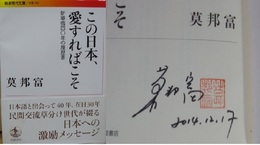 この日本、
愛すればこそ
新華僑40年の履歴書
莫邦富
日本語と出会って40年、在日30年
民間交流草分け世代が綴る
日本への
激励メッセージ
こそ
莫邦富
2014.12.17